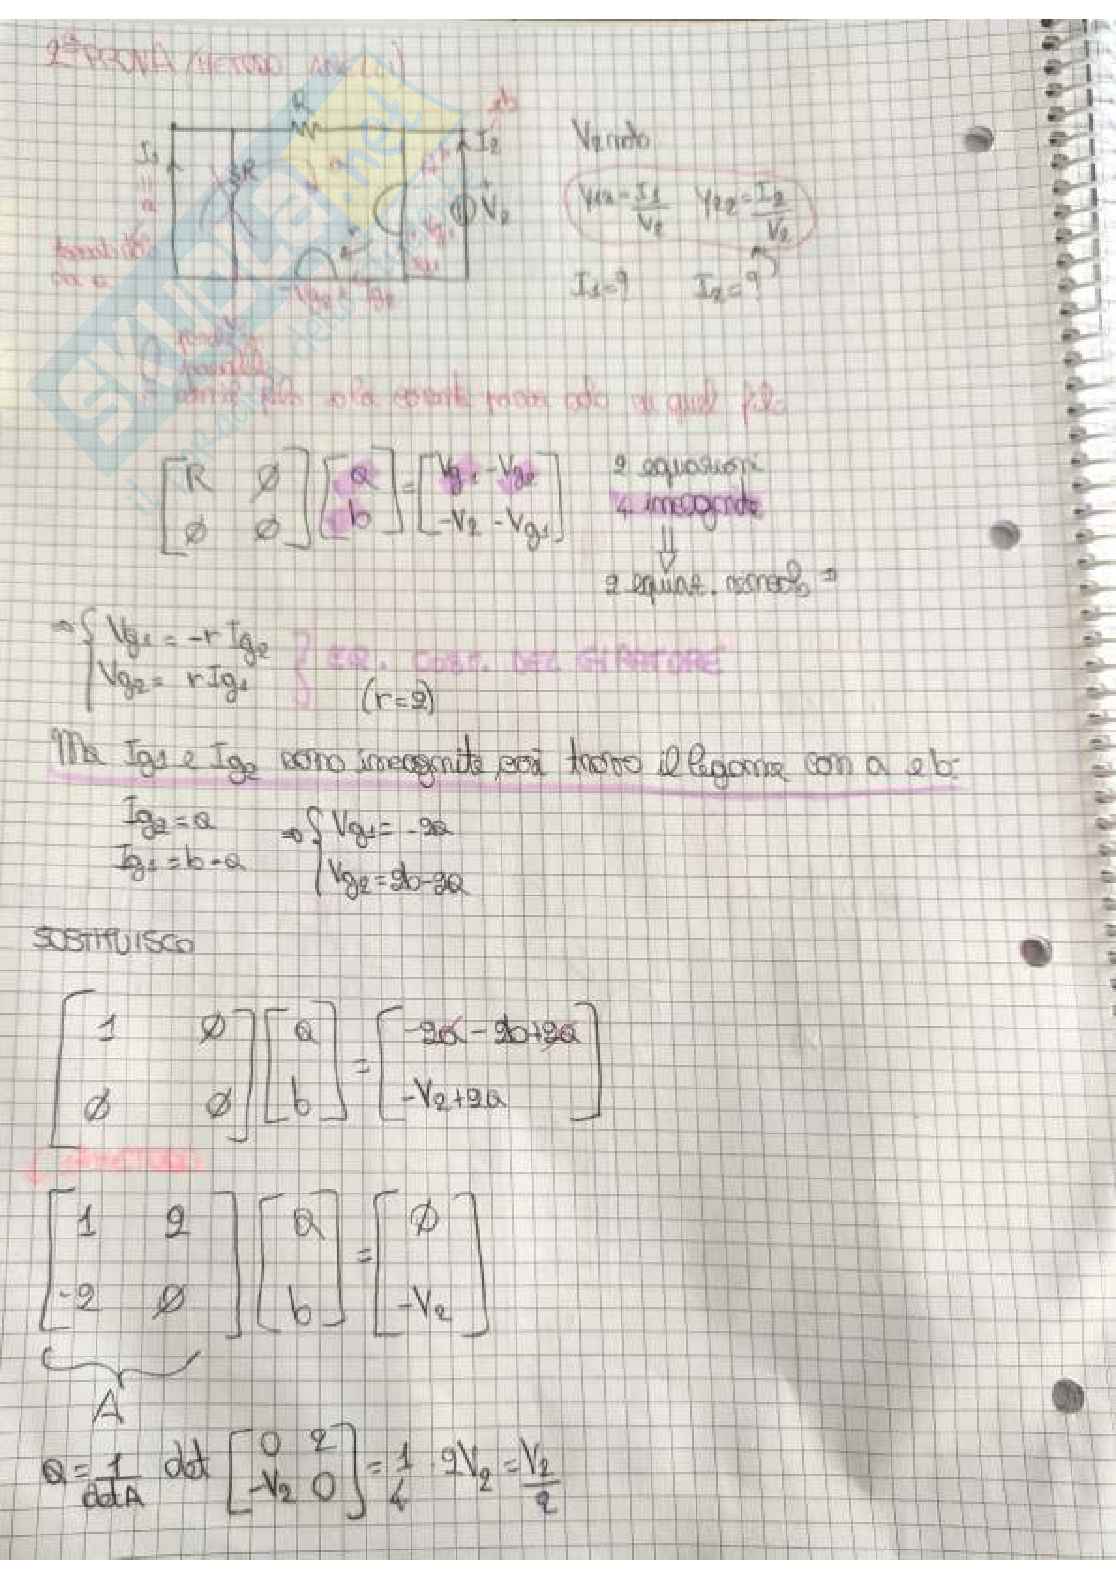 2ª PROVA (METODO ANELLI)
R
I₁
R
a
I₂
b
V₂
V₂ noto
Y₁₂ = I₁/V₂ Y₂₂ = I₂/V₂
I₁=? I₂=?
[R ∅; ∅ ∅] [a; b] = [Vg₁ - Vg₂; -V₂ - Vg₁]
2 equazioni
4 incognite
⇓
2 equaz. ⇒
⇒ { Vg₁ = -r Ig₂
Vg₂ = r Ig₁
} EQ. COST. DEL GIRATORE
(r=2)
Ma Ig₁ e Ig₂ sono incognite, poi trovo il legame con a e b:
Ig₂ = a
Ig₁ = b - a
⇒ { Vg₁ = -2a
Vg₂ = 2b-2a
SOSTITUISCO
[1 ∅; ∅ ∅] [a; b] = [-2a - 2b+2a; -V₂+2a]
↓
[1 2; -2 ∅] [a; b] = [∅; -V₂]
A
a = 1/detA det [0 2; -V₂ 0] = 1/4 · 2V₂ = V₂/2